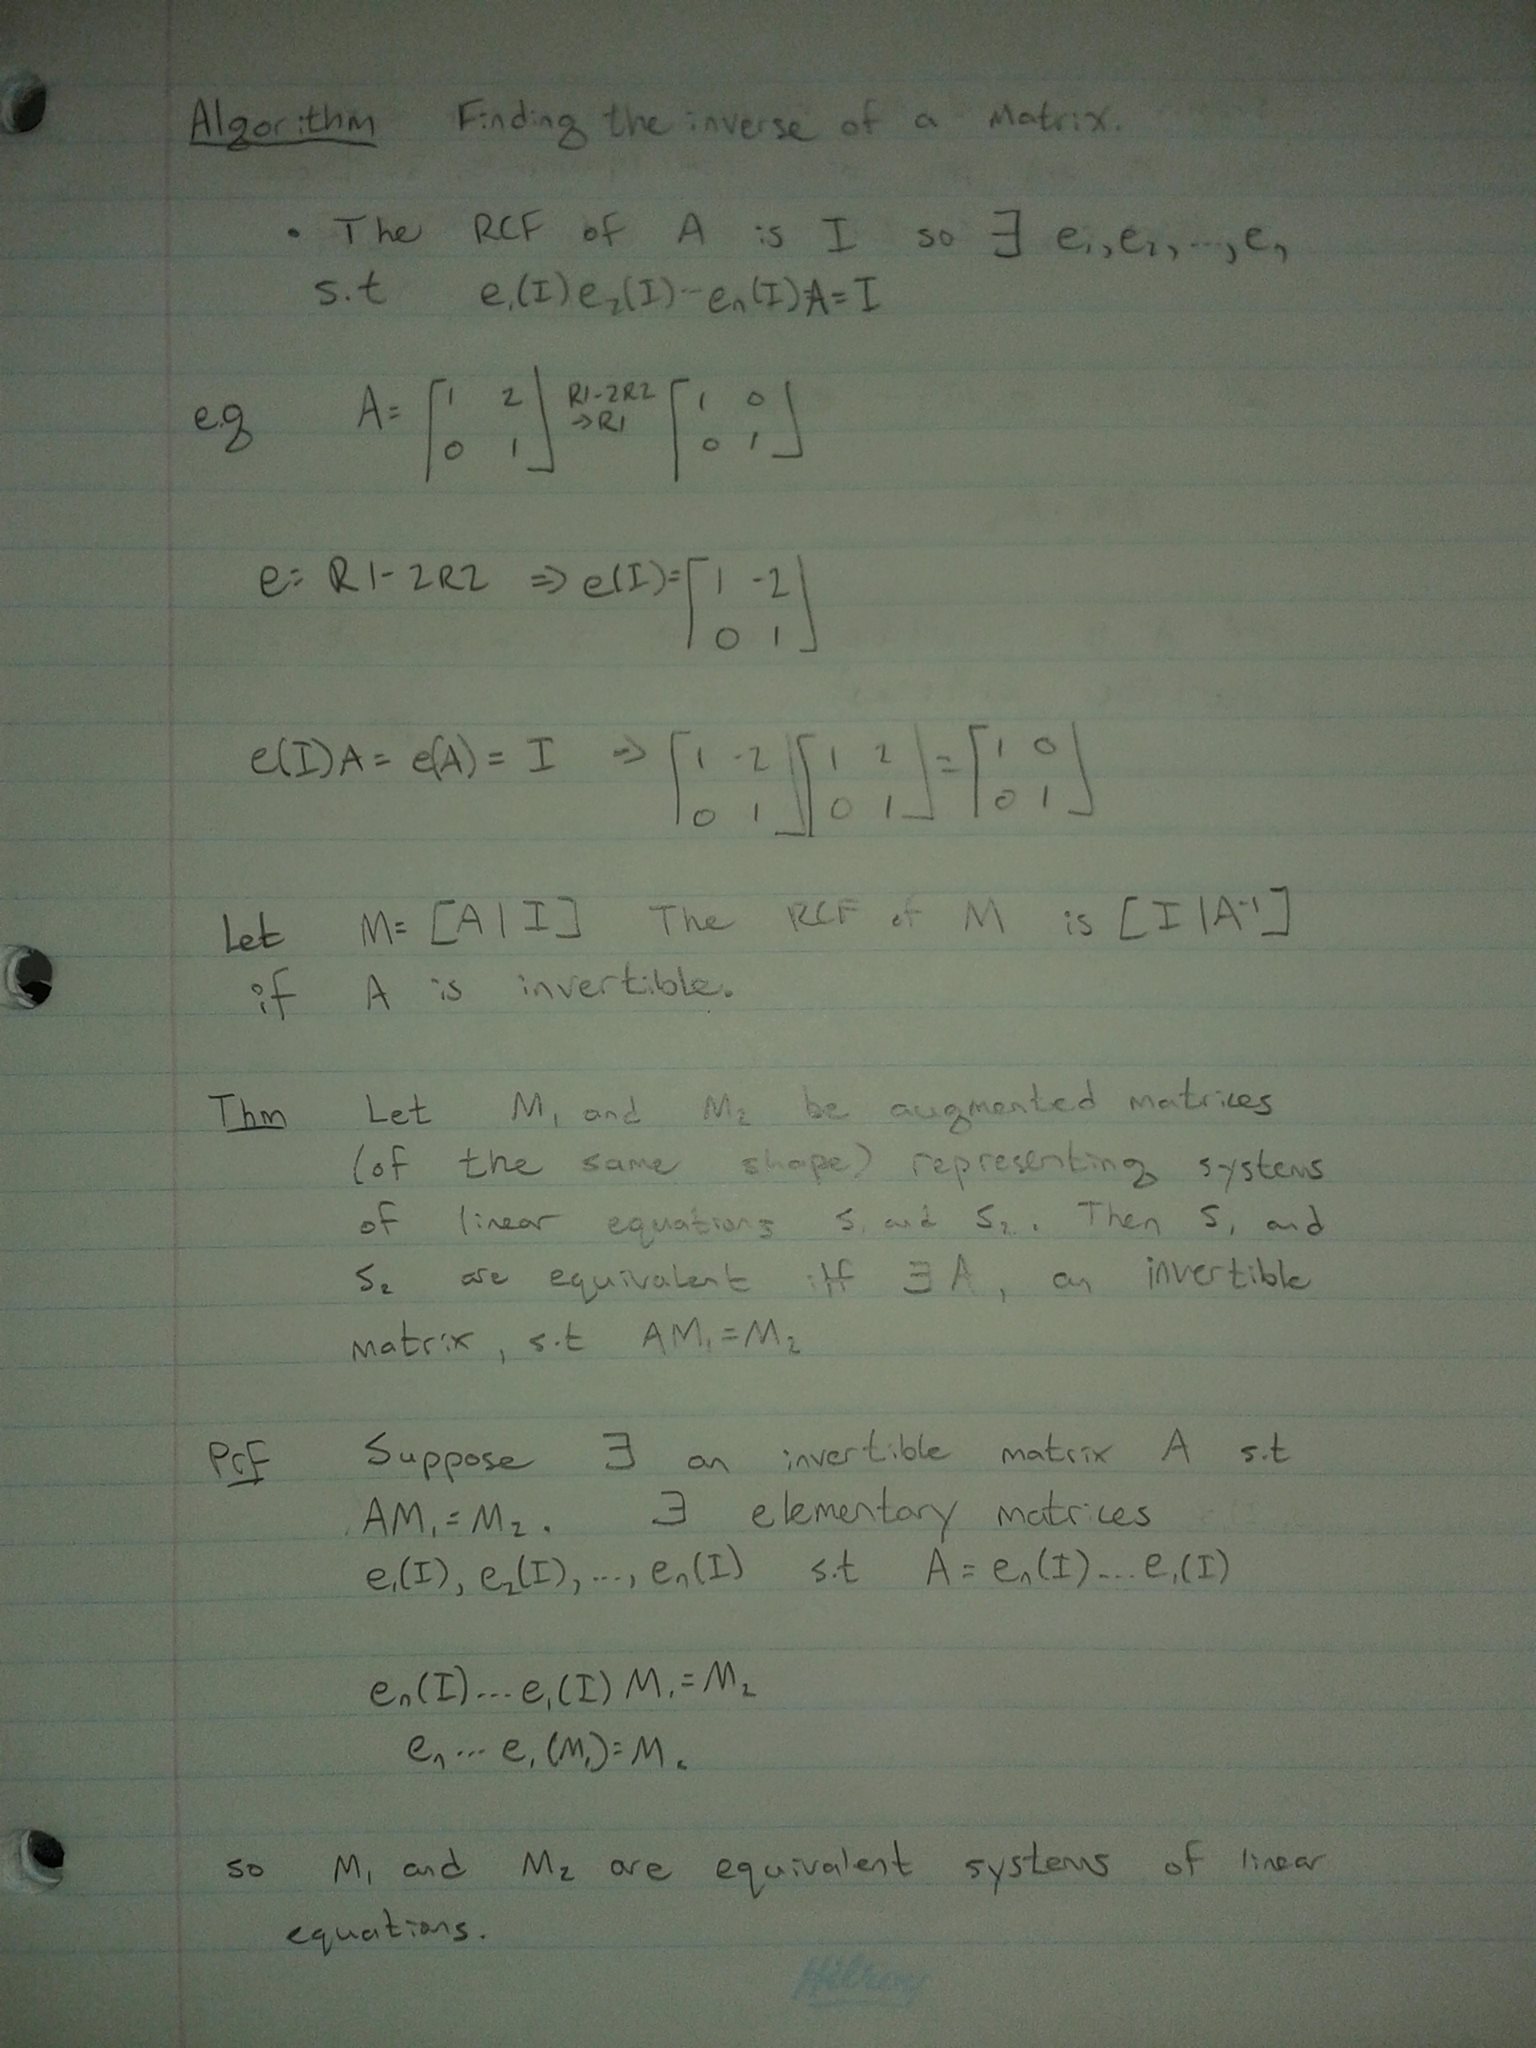 Algorithm Finding the inverse of a Matrix.
• The RCF of A is I so ∃ e₁, e₂, ..., eₙ
s.t e₁(I)e₂(I)--eₙ(I)A=I
e.g A= [1 2; 0 1] R1-2R2 →R1 [1 0; 0 1]
e= R1-2R2 ⇒ e(I)= [1 -2; 0 1]
e(I)A = e(A) = I ⇒ [1 -2; 0 1][1 2; 0 1] = [1 0; 0 1]
Let M= [A|I] The RCF of M is [I|A⁻¹]
if A is invertible.
Thm Let M₁ and M₂ be augmented matrices
(of the same shape) representing systems
of linear equations S₁ and S₂. Then S₁ and
S₂ are equivalent iff ∃ A, an invertible
matrix, s.t AM₁=M₂
Prf Suppose ∃ an invertible matrix A s.t
AM₁=M₂. ∃ elementary matrices
e₁(I), e₂(I), ..., eₙ(I) s.t A = eₙ(I)...e₁(I)
eₙ(I)...e₁(I) M₁=M₂
eₙ...e₁(M₁)=M₂
so M₁ and M₂ are equivalent systems of linear
equations.
Hilroy